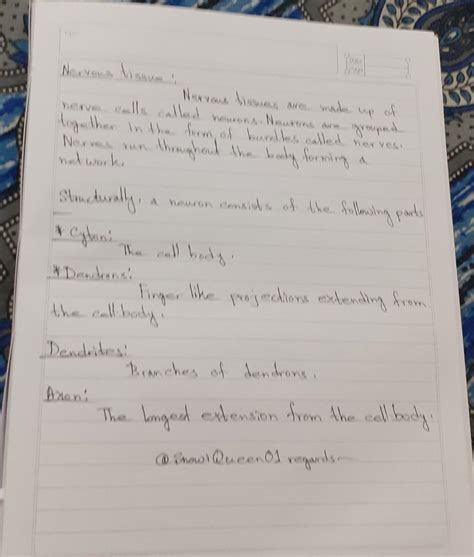 Nervous tissue:
Nervous tissues are made up of
nerve cells called neurons. Neurons are grouped
together in the form of bundles called nerves.
Nerves run throughout the body forming a
network.
Structurally, a neuron consists of the following parts
* Cyton:
The cell body.
* Dendrons:
Finger like projections extending from
the cell body.
Dendrites:
Branches of dendrons.
Axon:
The longest extension from the cell body.
@Snow1Queen01 regards